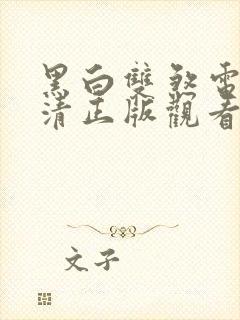 黑白雙煞電
清正版觀看
文子